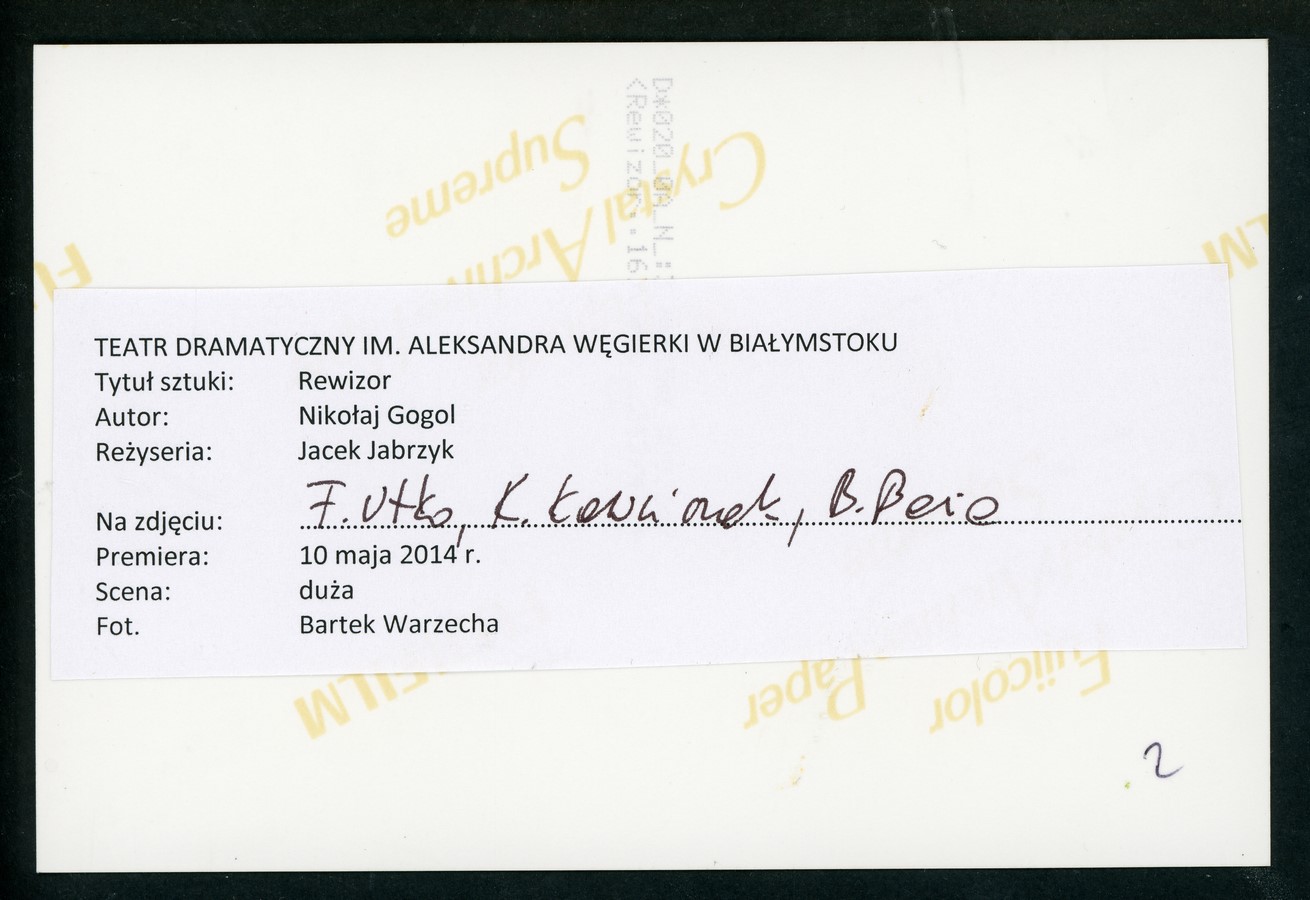 D*020_0A_N_
<Rewizor..16
Crystal Archive
Supreme
FILM
TEATR DRAMATYCZNY IM. ALEKSANDRA WĘGIERKI W BIAŁYMSTOKU
Tytuł sztuki: Rewizor
Autor: Nikołaj Gogol
Reżyseria: Jacek Jabrzyk
Na zdjęciu: F. Utko, K. Ławniczak, B. Beio
Premiera: 10 maja 2014 r.
Scena: duża
Fot. Bartek Warzecha
FILM
Fujicolor
Paper
2